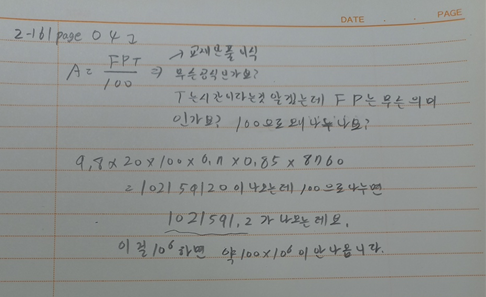 DATE
PAGE
2-161 page 04 그
A = FPT/100 ⇒ 무슨공식인가요?
→ 교재인풀이식
T는시간이라는것알겠는데 FP는무슨의미
인가요? 100으로왜나누나요?
9,8×20×100×0,7×0,85×8760
= 102159120 이나오는데 100으로나누면
1021591,2 가 나오는데요,
이걸 10⁶하면 약 100×10⁶이안나옵니다.